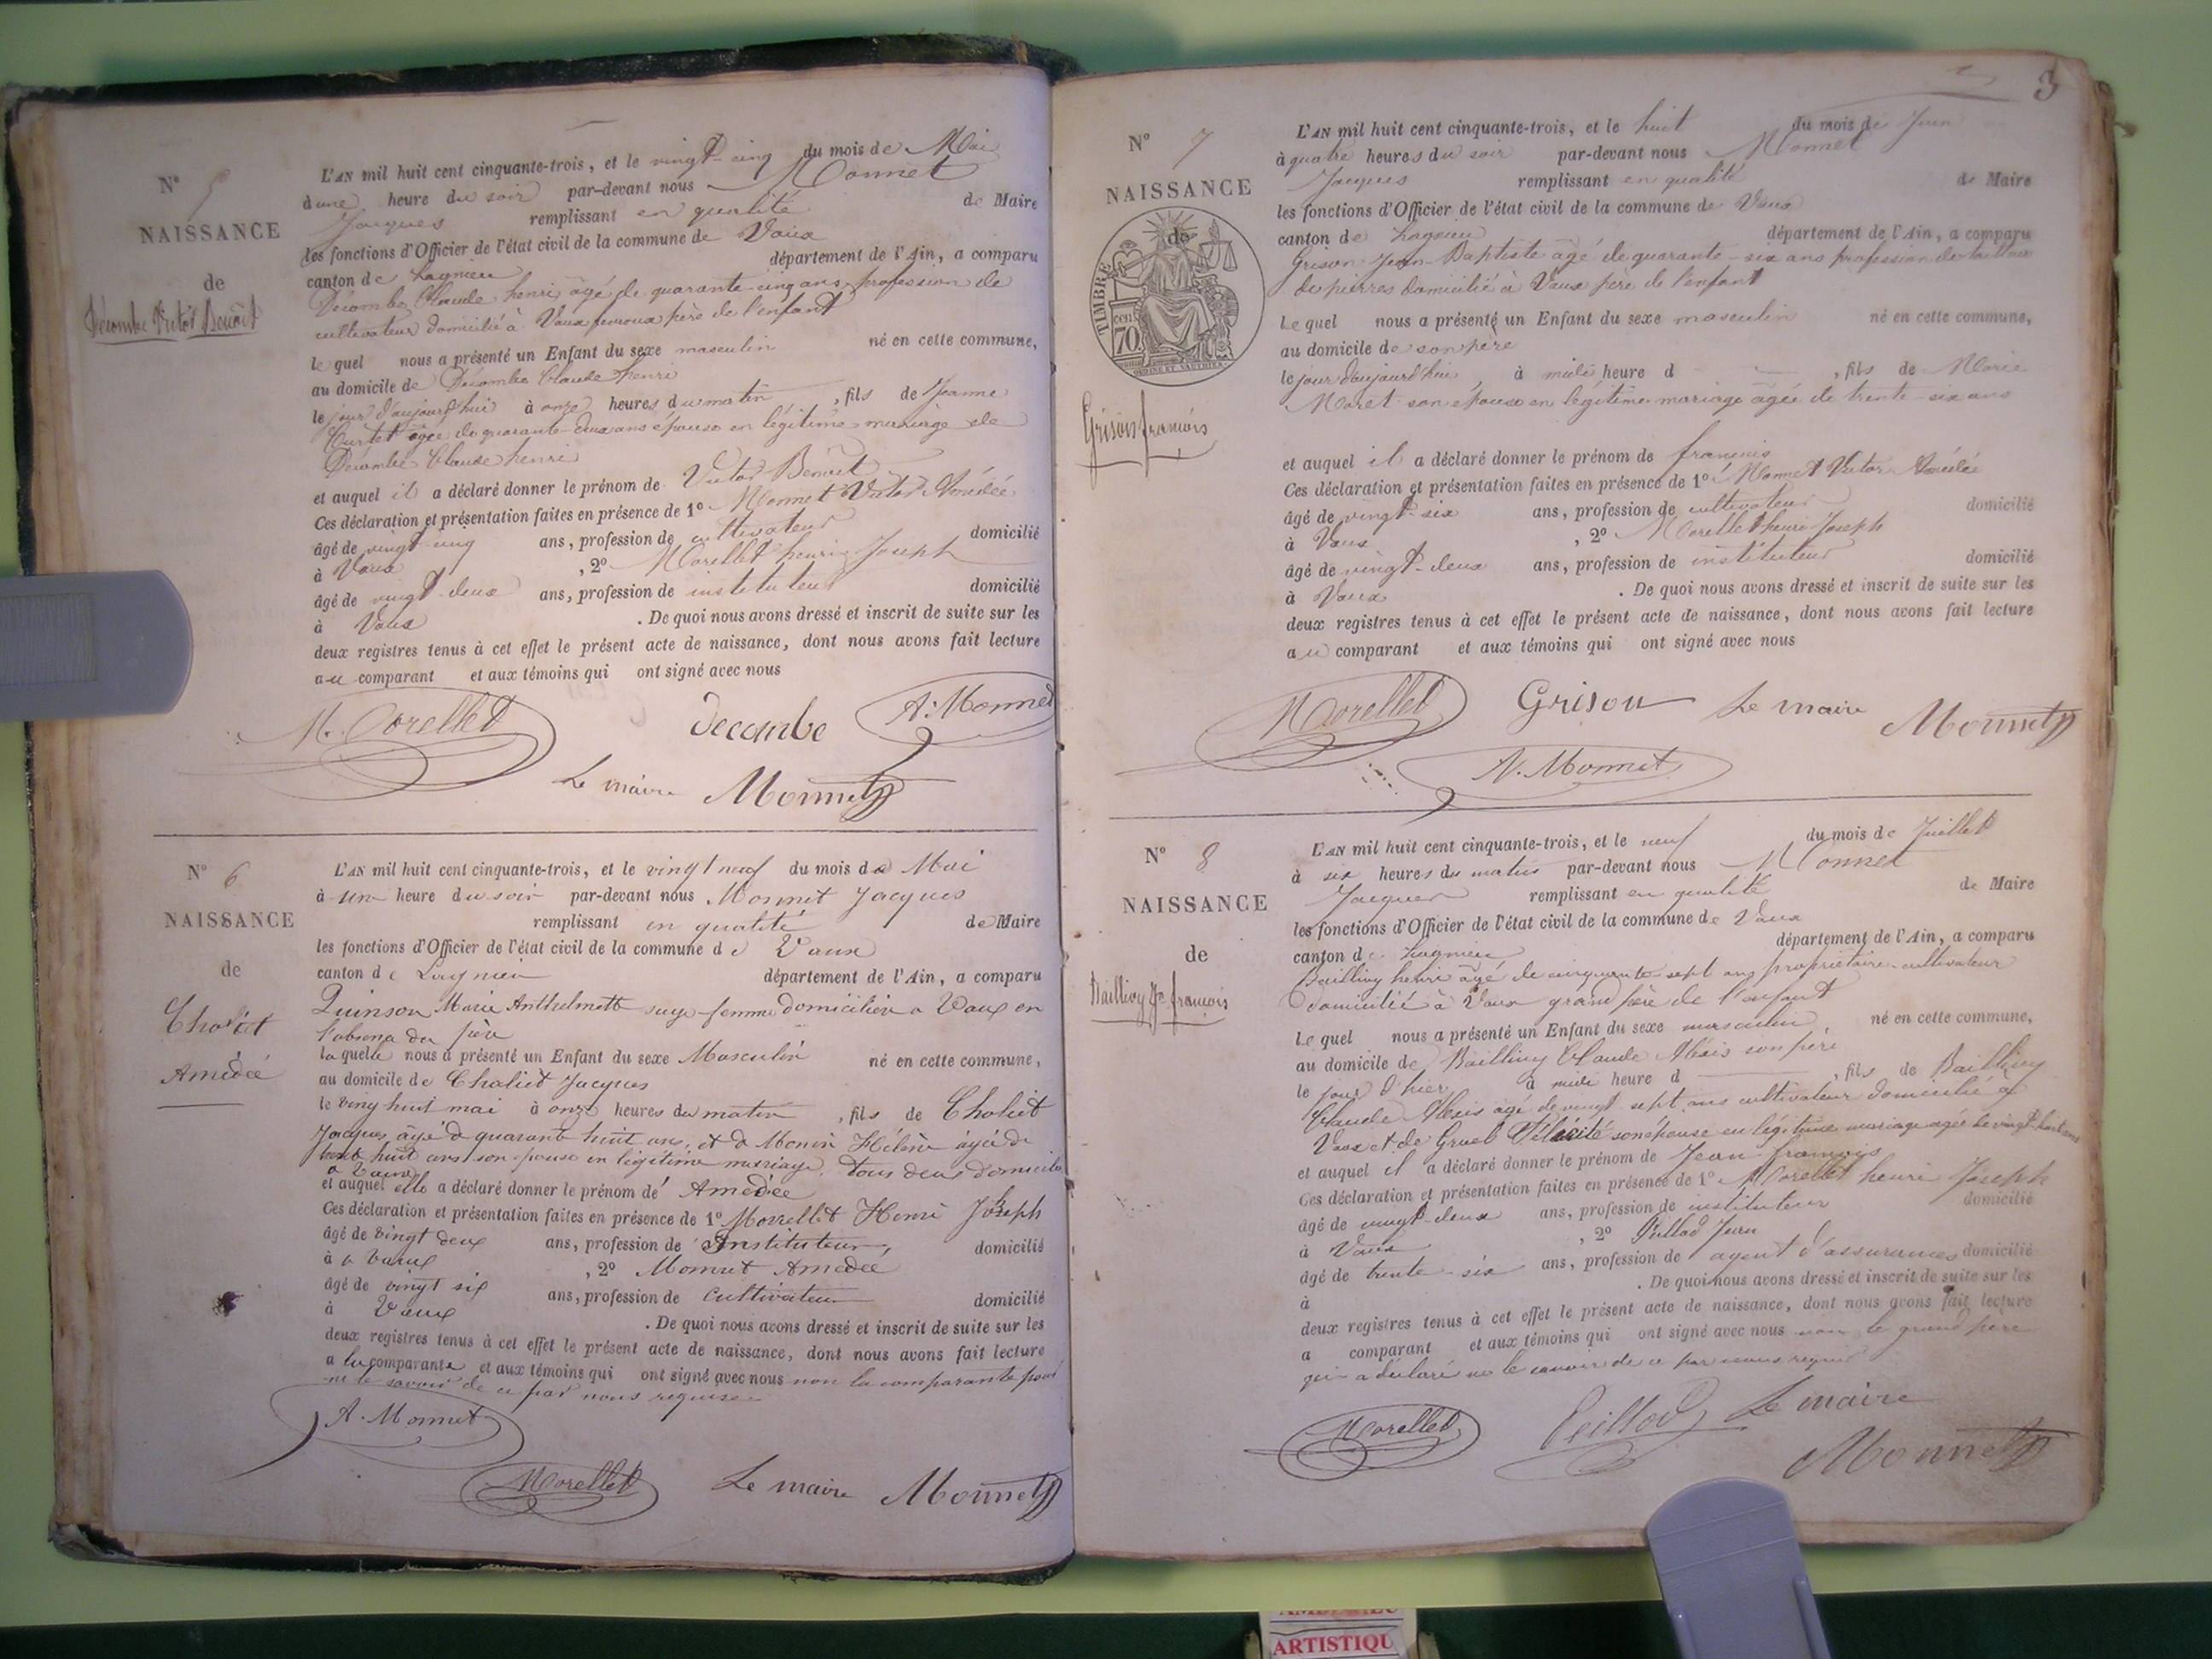 N° 5
NAISSANCE
de
Décombe Victor Benoît
L'AN mil huit cent cinquante-trois, et le vingt-cinq du mois de Mai
à une heure du soir par-devant nous Monnet
Jacques remplissant en qualité de Maire
les fonctions d'Officier de l'état civil de la commune de Vaux
canton de Lagnieu département de l'Ain, a comparu
Décombe Claude henri âgé de quarante-cinq ans profession de
cultivateur domicilié à Vaux père de l'enfant
le quel nous a présenté un Enfant du sexe masculin né en cette commune,
au domicile de Décombe Claude henri
le jour d'aujourd'hui à onze heures du matin, fils de Jeanne
Curtet âgée de quarante-deux ans épouse en légitime mariage de
Décombe Claude henri
et auquel il a déclaré donner le prénom de Victor Benoit
Ces déclaration et présentation faites en présence de 1° Monnet Victor Amédée
âgé de vingt ans, profession de cultivateur domicilié
à Vaux, 2° Morellet henri Joseph
âgé de vingt-deux ans, profession de instituteur domicilié
à Vaux. De quoi nous avons dressé et inscrit de suite sur les
deux registres tenus à cet effet le présent acte de naissance, dont nous avons fait lecture
au comparant et aux témoins qui ont signé avec nous
Morellet decombe A. Monnet
Le maire Monnet
N° 6
NAISSANCE
de
Choliet
Amédée
L'AN mil huit cent cinquante-trois, et le vingt neuf du mois de Mai
à une heure du soir par-devant nous Monnet Jacques
remplissant en qualité de Maire
les fonctions d'Officier de l'état civil de la commune de Vaux
canton de Lagnieu département de l'Ain, a comparu
Quinson Marie Anthelmette sage-femme domiciliée a Vaux en
l'absence du père
la quelle nous a présenté un Enfant du sexe Masculin né en cette commune,
au domicile de Choliet Jacques
le vingt huit mai à onze heures du matin, fils de Choliet
Jacques, âgé de quarante huit ans, et de Monin Hélène âgée de
trente huit ans son épouse en légitime mariage. tous deux domiciliés
a Vaux
et auquel elle a déclaré donner le prénom de Amédée
Ces déclaration et présentation faites en présence de 1° Morrellet Henri Joseph
âgé de vingt deux ans, profession de Instituteur, domicilié
à a vaux, 2° Monnet Amédée
âgé de vingt six ans, profession de Cultivateur domicilié
à Vaux. De quoi nous avons dressé et inscrit de suite sur les
deux registres tenus à cet effet le présent acte de naissance, dont nous avons fait lecture
a la comparante et aux témoins qui ont signé avec nous non la comparante pour
ne le savoir de ce par nous requise
A. Monnet
Morellet Le maire Monnet
3
N° 7
NAISSANCE
de
TIMBRE
70 cen
Grison francois
L'AN mil huit cent cinquante-trois, et le huit du mois de Juin
à quatre heures du soir par-devant nous Monnet
Jacques remplissant en qualité de Maire
les fonctions d'Officier de l'état civil de la commune de Vaux
canton de Lagnieu département de l'Ain, a comparu
Grison Jean-Baptiste âgé de quarante-six ans profession de tailleur
de pierres domicilié à Vaux père de l'enfant
Le quel nous a présenté un Enfant du sexe masculin né en cette commune,
au domicile de son père
le jour d'aujourd'hui, à midi heure d, fils de Marie
Moret son épouse en légitime mariage âgée de trente-six ans
et auquel il a déclaré donner le prénom de francois
Ces déclaration et présentation faites en présence de 1° Monnet Victor Amédée
âgé de vingt-six ans, profession de cultivateur domicilié
à Vaux, 2° Morellet henri Joseph
âgé de vingt-deux ans, profession de instituteur domicilié
à Vaux. De quoi nous avons dressé et inscrit de suite sur les
deux registres tenus à cet effet le présent acte de naissance, dont nous avons fait lecture
au comparant et aux témoins qui ont signé avec nous
Morellet Grison Le maire Monnet
A. Monnet
N° 8
NAISSANCE
de
Baillivy Jn francois
L'AN mil huit cent cinquante-trois, et le neuf du mois de Juillet
à six heures du matin par-devant nous Monnet
Jacques remplissant en qualité de Maire
les fonctions d'Officier de l'état civil de la commune de Vaux
canton de Lagnieu département de l'Ain, a comparu
Baillivy henri âgé de cinquante-sept ans propriétaire-cultivateur
domicilié à Vaux grand père de l'enfant
Le quel nous a présenté un Enfant du sexe masculin, né en cette commune,
au domicile de Baillivy Claude Alexis son père
le jour d'hier à midi heure d, fils de Baillivy
Claude Alexis âgé de vingt sept ans cultivateur domicilié à
Vaux et de Gruel Félicité son épouse en légitime mariage agée de vingt huit ans
et auquel il a déclaré donner le prénom de Jean francois
Ces déclaration et présentation faites en présence de 1° Morellet henri Joseph
âgé de vingt-deux ans, profession de instituteur domicilié
à Vaux, 2° Peillod Jean
âgé de trente-six ans, profession de agent d'assurances domicilié
à. De quoi nous avons dressé et inscrit de suite sur les
deux registres tenus à cet effet le présent acte de naissance, dont nous avons fait lecture
a comparant et aux témoins qui ont signé avec nous non le grand père
qui a déclaré ne le savoir de ce par nous requis
Morellet Peillod Le maire
Monnet
ARTISTIQU